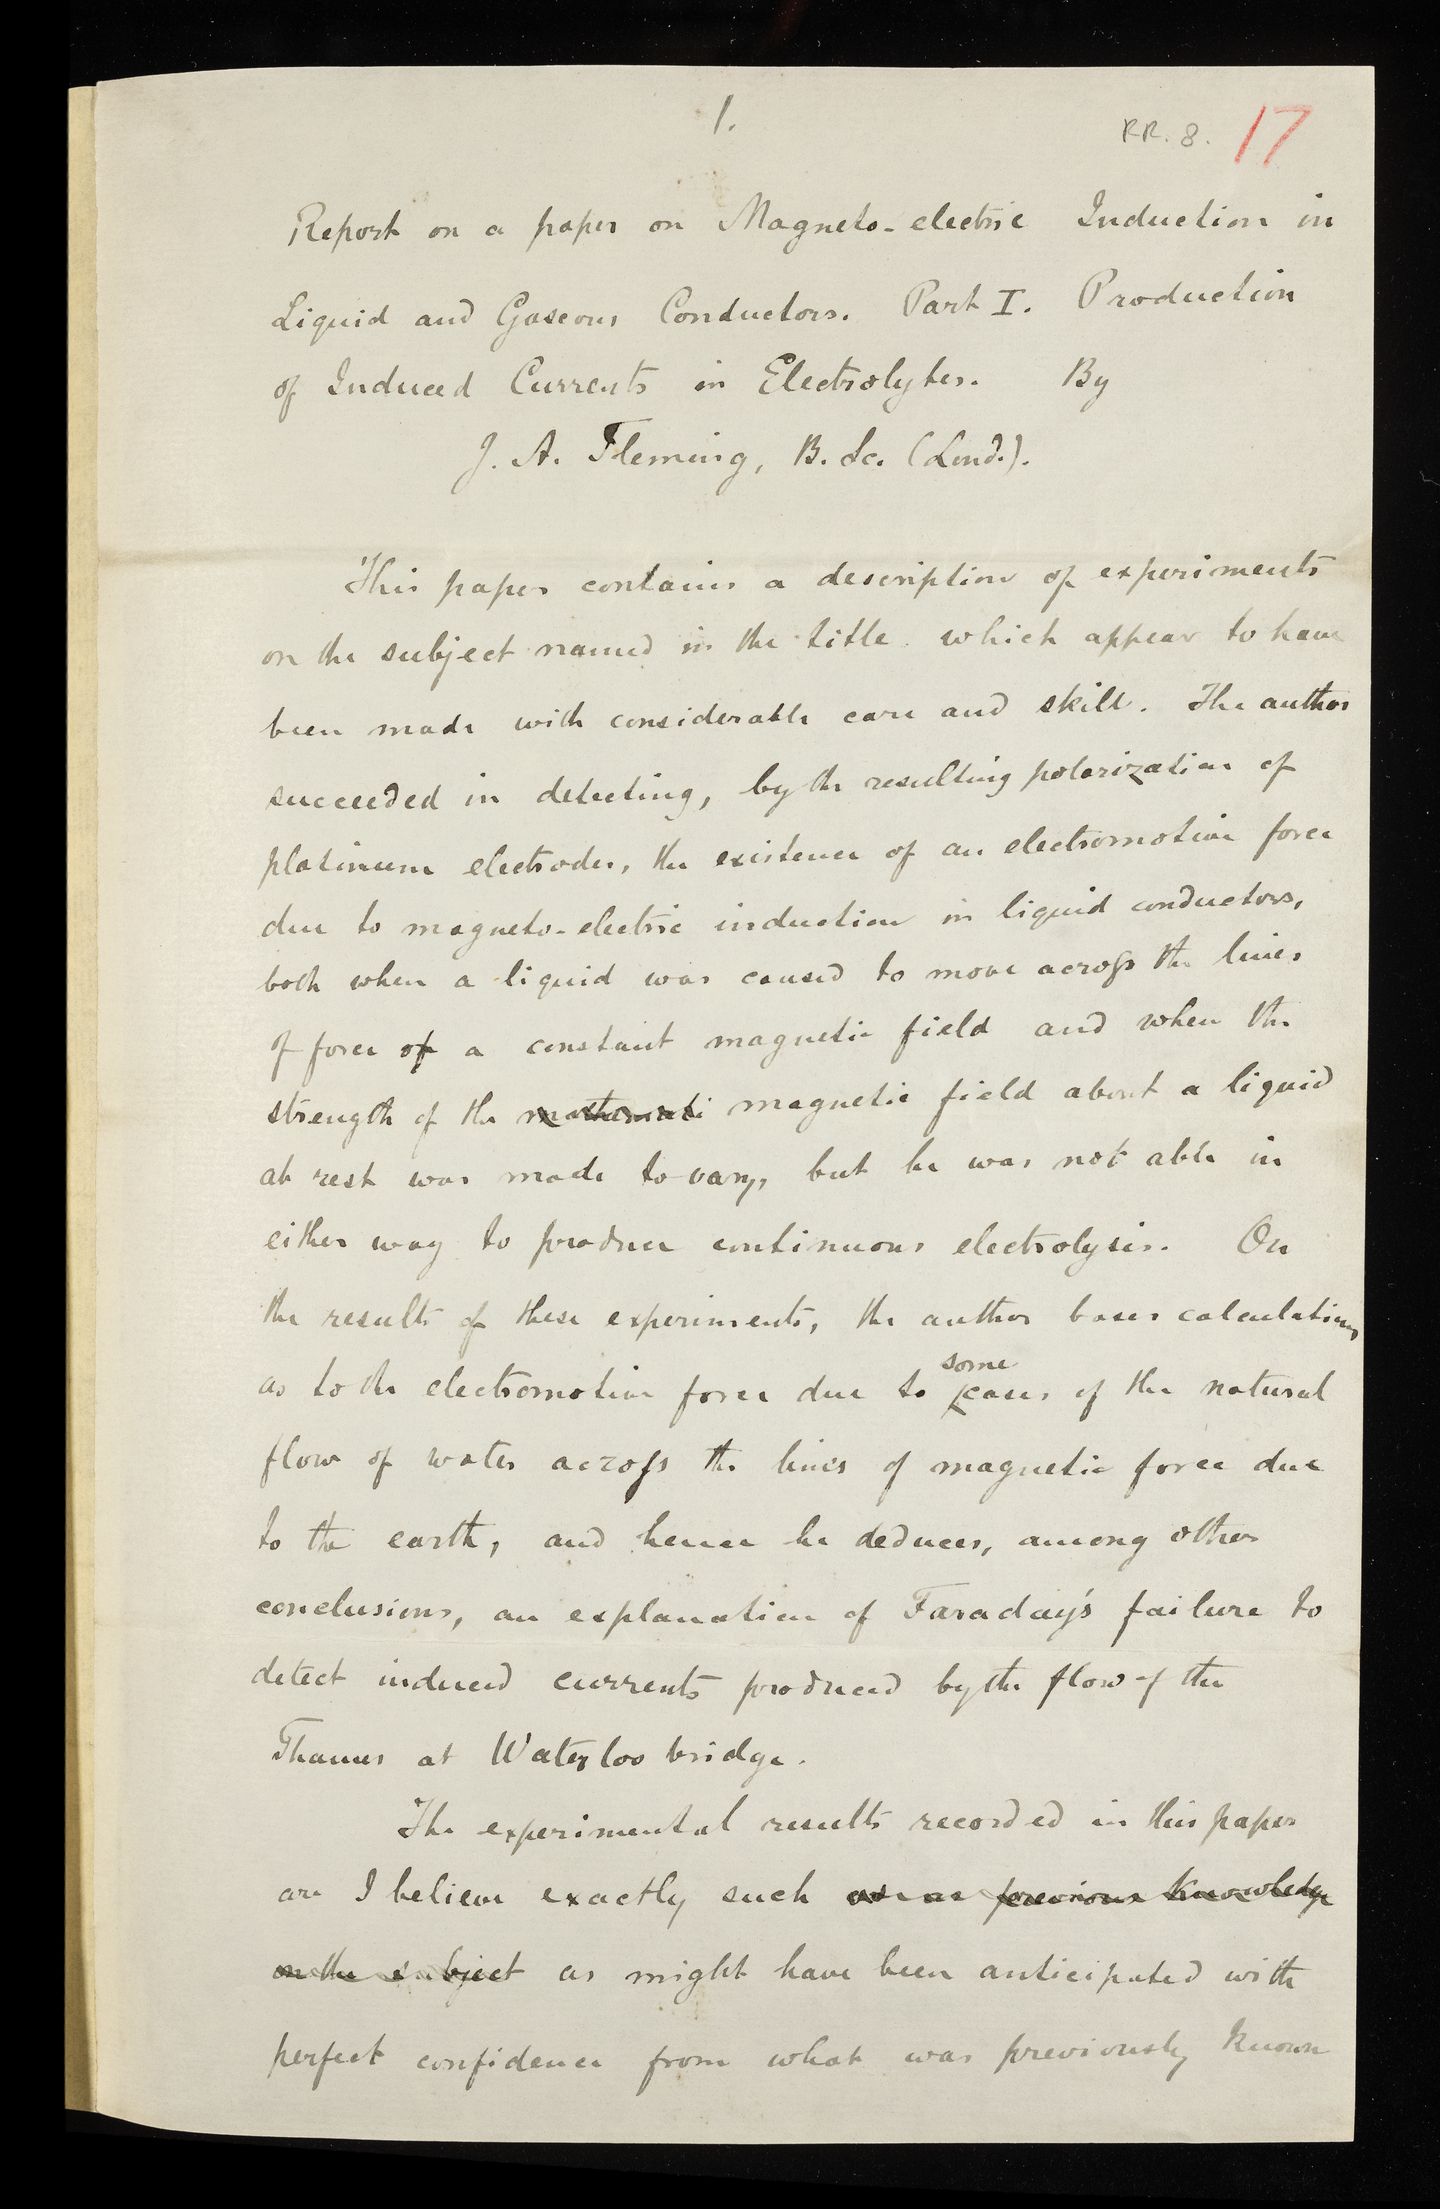 1.
RR. 8. 17
Report on a paper on Magneto-electric Induction in
Liquid and Gaseous Conductors. Part I. Production
of Induced Currents in Electrolytes. By
J. A. Fleming, B. Sc. (Lond.).
This paper contains a description of experiments
on the subject named in the title which appear to have
been made with considerable care and skill. The author
succeeded in detecting, by the resulting polarization of
platinum electrodes, the existence of an electromotive force
due to magneto-electric induction in liquid conductors,
both when a liquid was caused to move across the lines
of force of a constant magnetic field and when the
strength of the mathemati magnetic field about a liquid
at rest was made to vary, but he was not able in
either way to produce continuous electrolysis. On
the results of these experiments, the author bases calculations
as to the electromotive force due to some cases of the natural
flow of water across the lines of magnetic force due
to the earth, and hence he deduces, among other
conclusions, an explanation of Faraday's failure to
detect induced currents produced by the flow of the
Thames at Waterloo bridge.
The experimental results recorded in this paper
are I believe exactly such as previous knowledge
on the subject as might have been anticipated with
perfect confidence from what was previously known